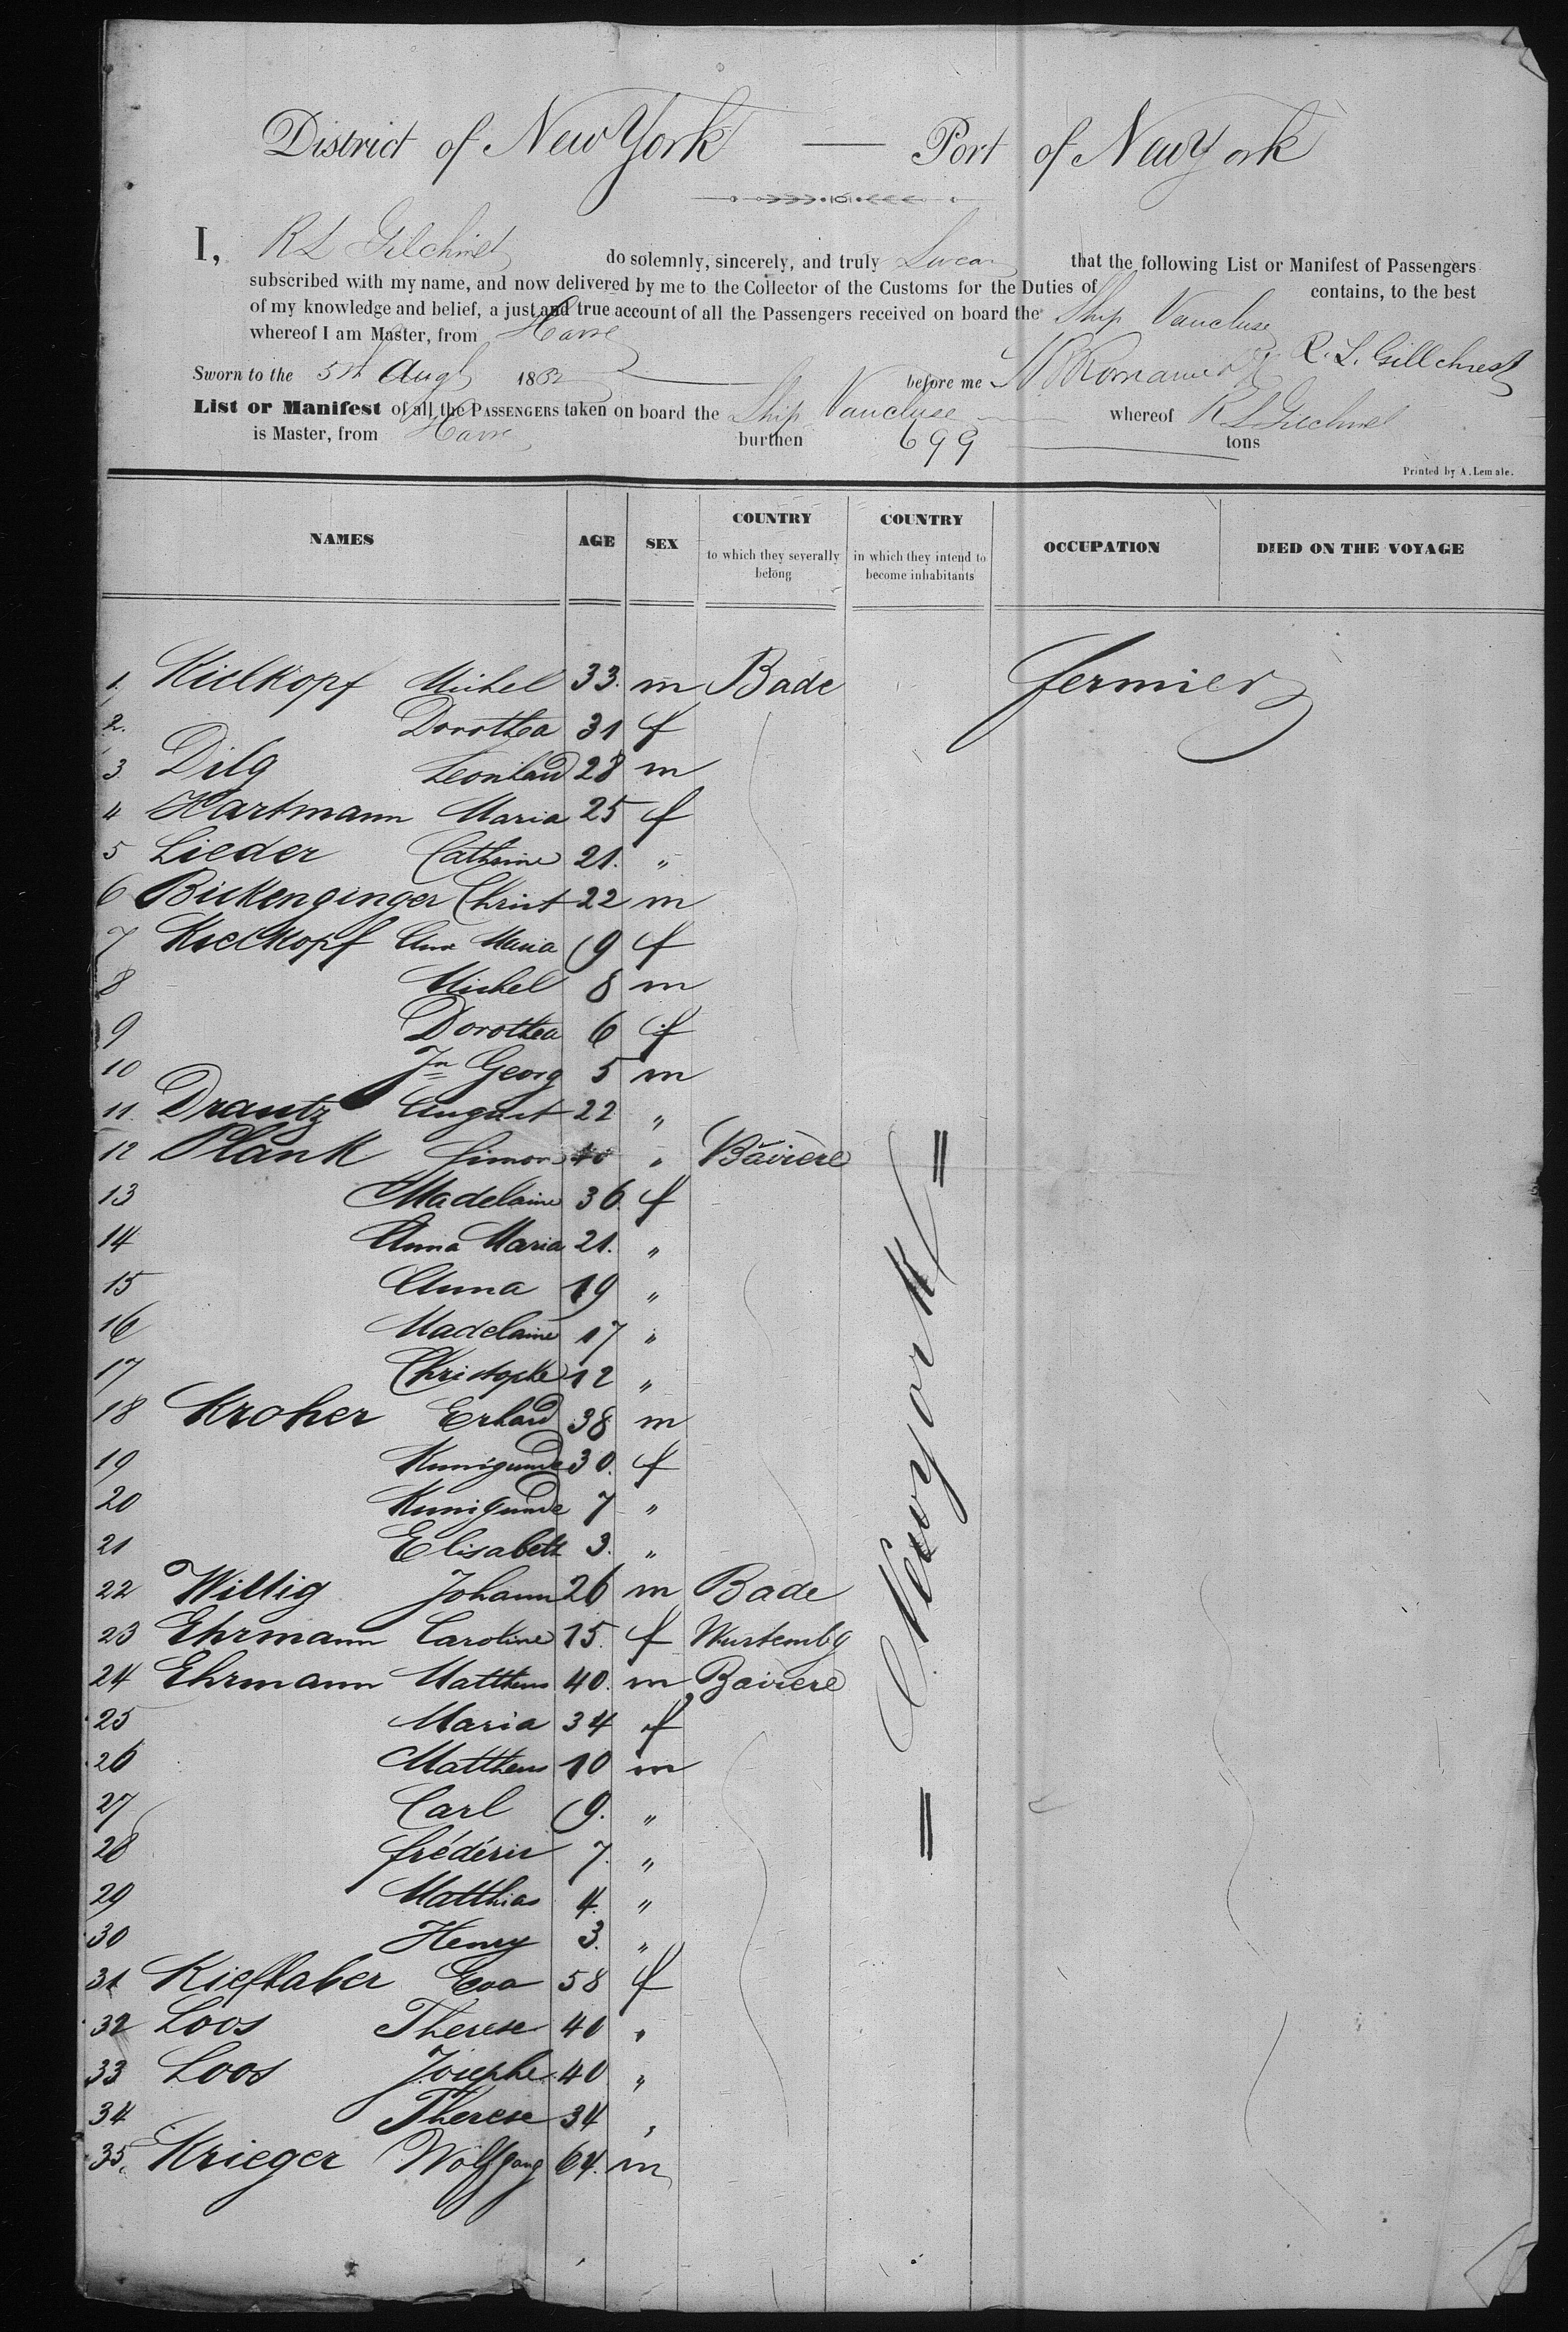 District of New York — Port of New York
I, R L Gilchrist do solemnly, sincerely, and truly Swear that the following List or Manifest of Passengers
subscribed with my name, and now delivered by me to the Collector of the Customs for the Duties of contains, to the best
of my knowledge and belief, a just and true account of all the Passengers received on board the Ship Vaucluse
whereof I am Master, from Havre R. L. Gillchrest
Sworn to the 5th Augt 1862 before me
List or Manifest of all the PASSENGERS taken on board the Ship Vaucluse whereof R L Gilchrist
is Master, from Havre burthen 699 tons
Printed by A. Lemale.
NAMES AGE SEX COUNTRY to which they severally belong COUNTRY in which they intend to become inhabitants OCCUPATION DIED ON THE VOYAGE
1. Kielkopf Michel 33. m Bade fermier
2. Dorothea 31 f
3 Dilg Leonhard 28 m
4 Hartmann Maria 25 f
5 Lieder Cathrine 21. "
6 Bickenginger Christ 22 m
7 Kielkopf Ana Maria 9 f
8 Michel 8 m
9 Dorothea 6 f
10 Jn Georg 5 m
11. Drautz August 22 "
12 Plank Simon 40 " Bavière
13 Madelaine 36. f
14 Anna Maria 21. "
15 Anna 19 "
16 Madelaine 17 "
17 Christophe 12 "
18 Kroher Erhard 38 m
19 Kunigunde 30. f
20 Kunigunde 7 "
21 Elisabeth 3. "
22 Willig Johann 26 m Bade
23 Ehrmann Caroline 15. f Wurtembg
24 Ehrmann Mattheus 40. m Bavière
25 Maria 34 f
26 Mattheus 10 m
27 Carl 9. "
28 frédéric 7. "
29 Matthias 4. "
30 Henry 3. "
31 Kiefhaber Eva 58 f
32 Loos Therese 40 "
33 Loos Josephe 40 "
34 Therese 34 "
35. Krieger Wolfgang 64. m
= Newyork =